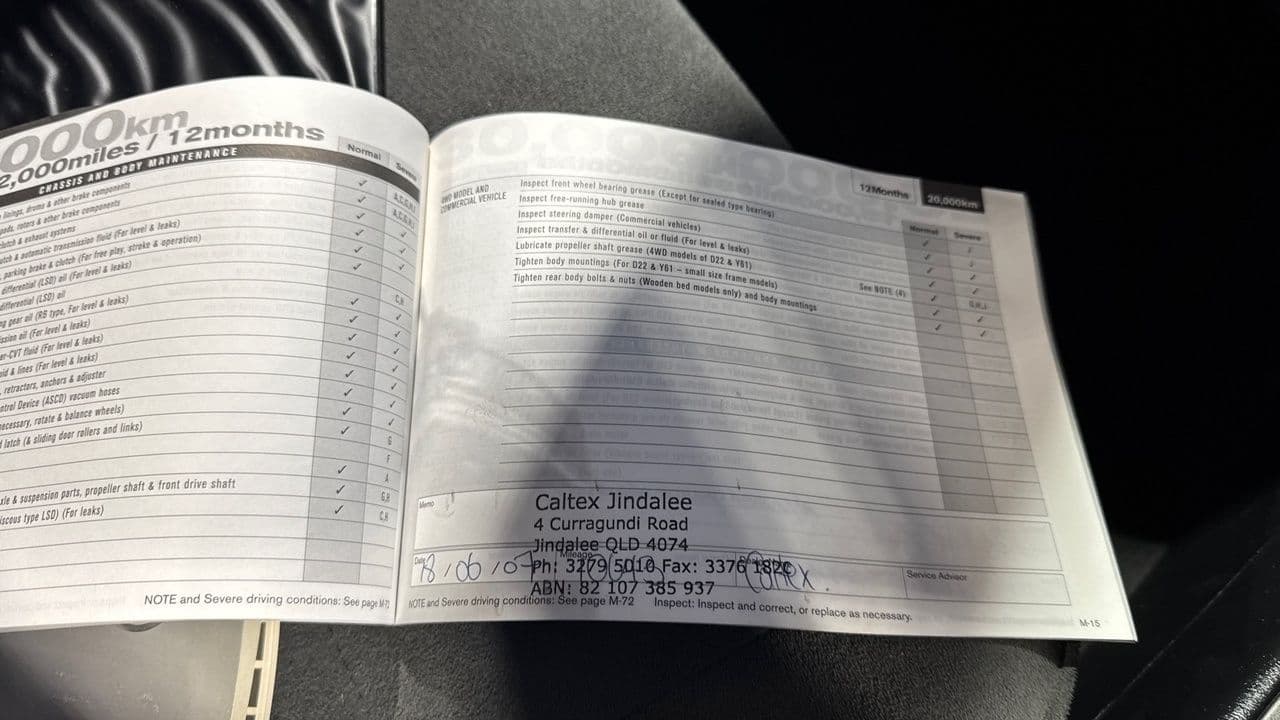 000km
2,000miles / 12months
CHASSIS AND BODY MAINTENANCE
Normal
Severe
linings, drums & other brake components
pads, rotors & other brake components
clutch & exhaust systems
& automatic transmission fluid (For level & leaks)
parking brake & clutch (For free play, stroke & operation)
differential (LSD) oil (For level & leaks)
differential (LSD) oil
gear oil (RB type, For level & leaks)
oil (For level & leaks)
CVT fluid (For level & leaks)
& lines (For level & leaks)
retractors, anchors & adjuster
Device (ASCD) vacuum hoses
necessary, rotate & balance wheels)
latch (& sliding door rollers and links)
& suspension parts, propeller shaft & front drive shaft
type LSD) (For leaks)
C,H
G
F
A
G,H
C,H
NOTE and Severe driving conditions: See page M-72
12Months
20,000km
Normal
Severe
4WD MODEL AND
COMMERCIAL VEHICLE
Inspect front wheel bearing grease (Except for sealed type bearing)
Inspect free-running hub grease
Inspect steering damper (Commercial vehicles)
Inspect transfer & differential oil or fluid (For level & leaks)
Lubricate propeller shaft grease (4WD models of D22 & Y61)
Tighten body mountings (For D22 & Y61 – small size frame models) See NOTE (4)
Tighten rear body bolts & nuts (Wooden bed models only) and body mountings
Memo
Caltex Jindalee
4 Curragundi Road
Jindalee QLD 4074
Date 18/06/07
Mileage
Ph: 3279 5010 Fax: 3376 1820
Caltex.
ABN: 82 107 385 937
Service Advisor
NOTE and Severe driving conditions: See page M-72 Inspect: Inspect and correct, or replace as necessary.
M-15